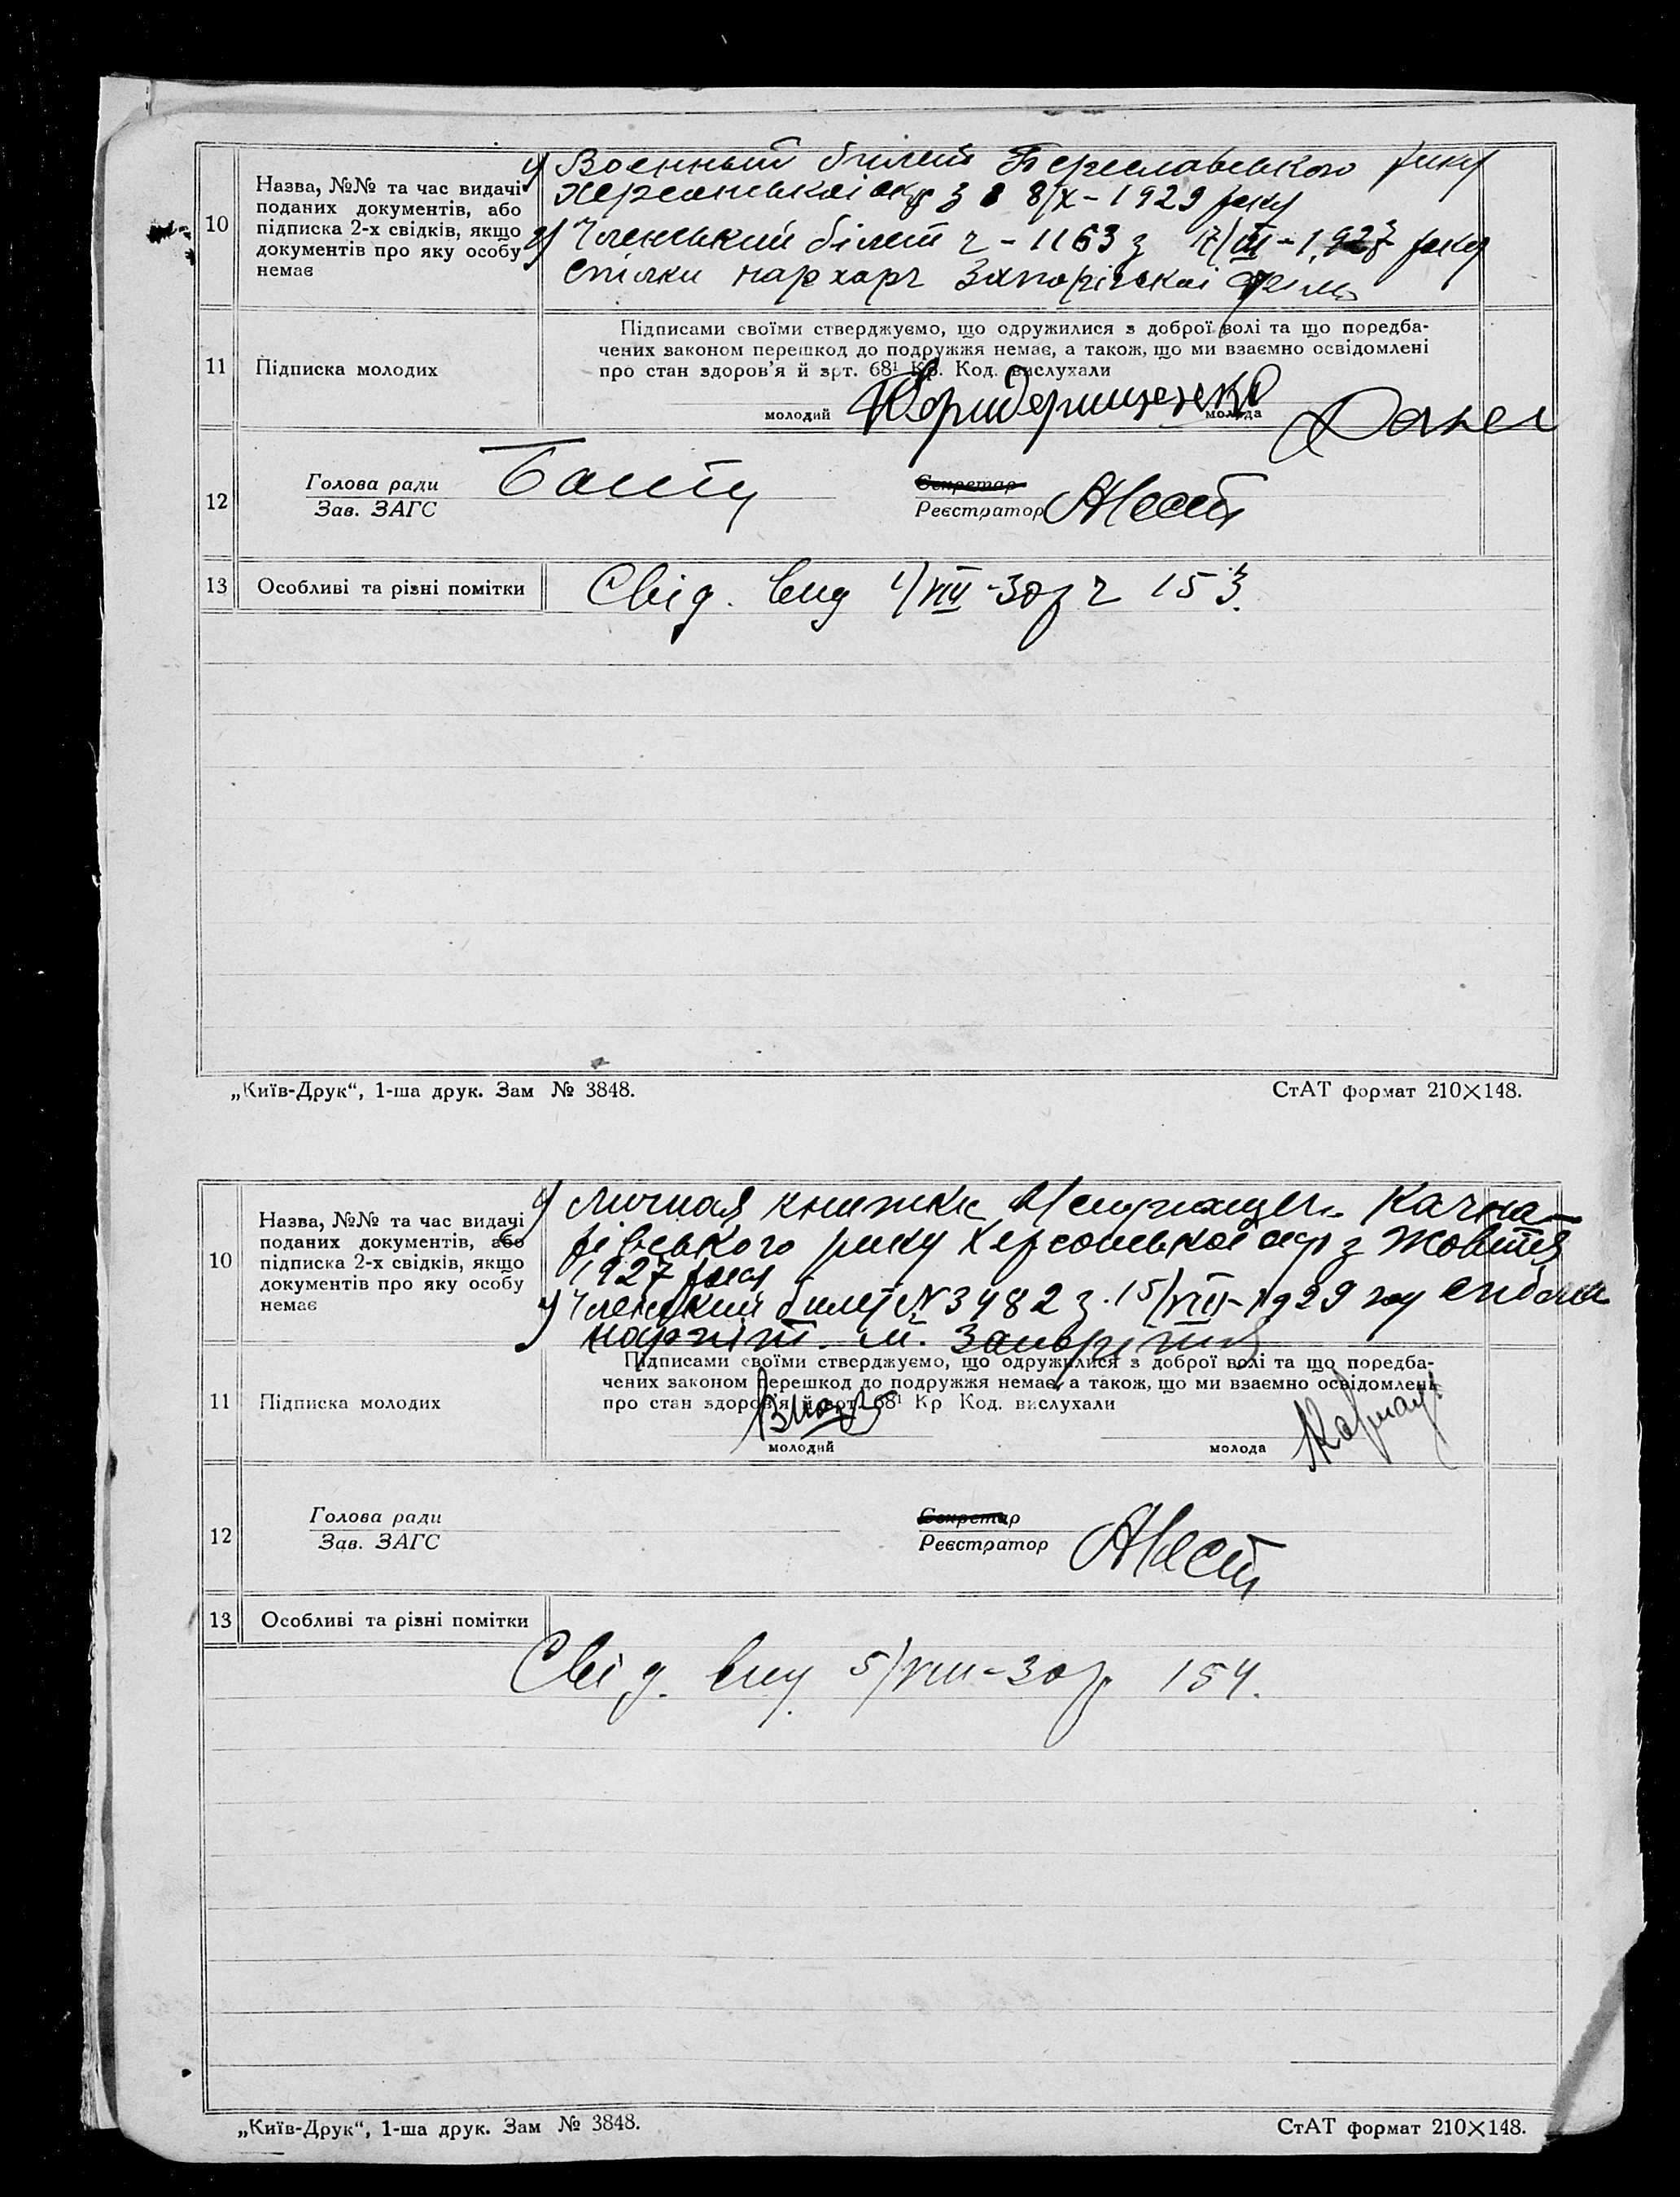 10
Назва, №№ та час видачі
поданих документів, або
підписка 2-х свідків, якщо
документів про яку особу
немає
1) Военный билет Бериславського рику
Херсонської окр з 8/X - 1929 року
2) Членський білет ч - 1163 з 17/III - 1927 року
спілки нархарч Запорізької
11
Підписка молодих
Підписами своїми стверджуємо, що одружилися з доброї волі та що поредба-
чених законом перешкод до подружжя немає, а також, що ми взаємно освідомлені
про стан здоров'я й арт. 68¹ Кр. Код. вислухали
молодий
молода
12
Голова ради
Зав. ЗАГС
Секретар
Реєстратор
13
Особливі та різні помітки
Свід. вид 4/VIII-30р ч 153.
„Київ-Друк“, 1-ша друк. Зам № 3848.
СтАТ формат 210×148.
10
Назва, №№ та час видачі
поданих документів, або
підписка 2-х свідків, якщо
документів про яку особу
немає
1) Личная книжка Качка-
рівського рику Херсонської окр з Жовтня
1927 року
2) Членський билет № 3482 з 15/VIII-1929 году
нарпіт м. Запоріжжя
11
Підписка молодих
Підписами своїми стверджуємо, що одружилися з доброї волі та що поредба-
чених законом перешкод до подружжя немає, а також, що ми взаємно освідомлені
про стан здоров'я й арт. 68¹ Кр Код. вислухали
молодий
молода
12
Голова ради
Зав. ЗАГС
Секретар
Реєстратор
13
Особливі та різні помітки
Свід. вид 5/VIII-30р. 154.
„Київ-Друк“, 1-ша друк. Зам № 3848.
СтАТ формат 210×148.